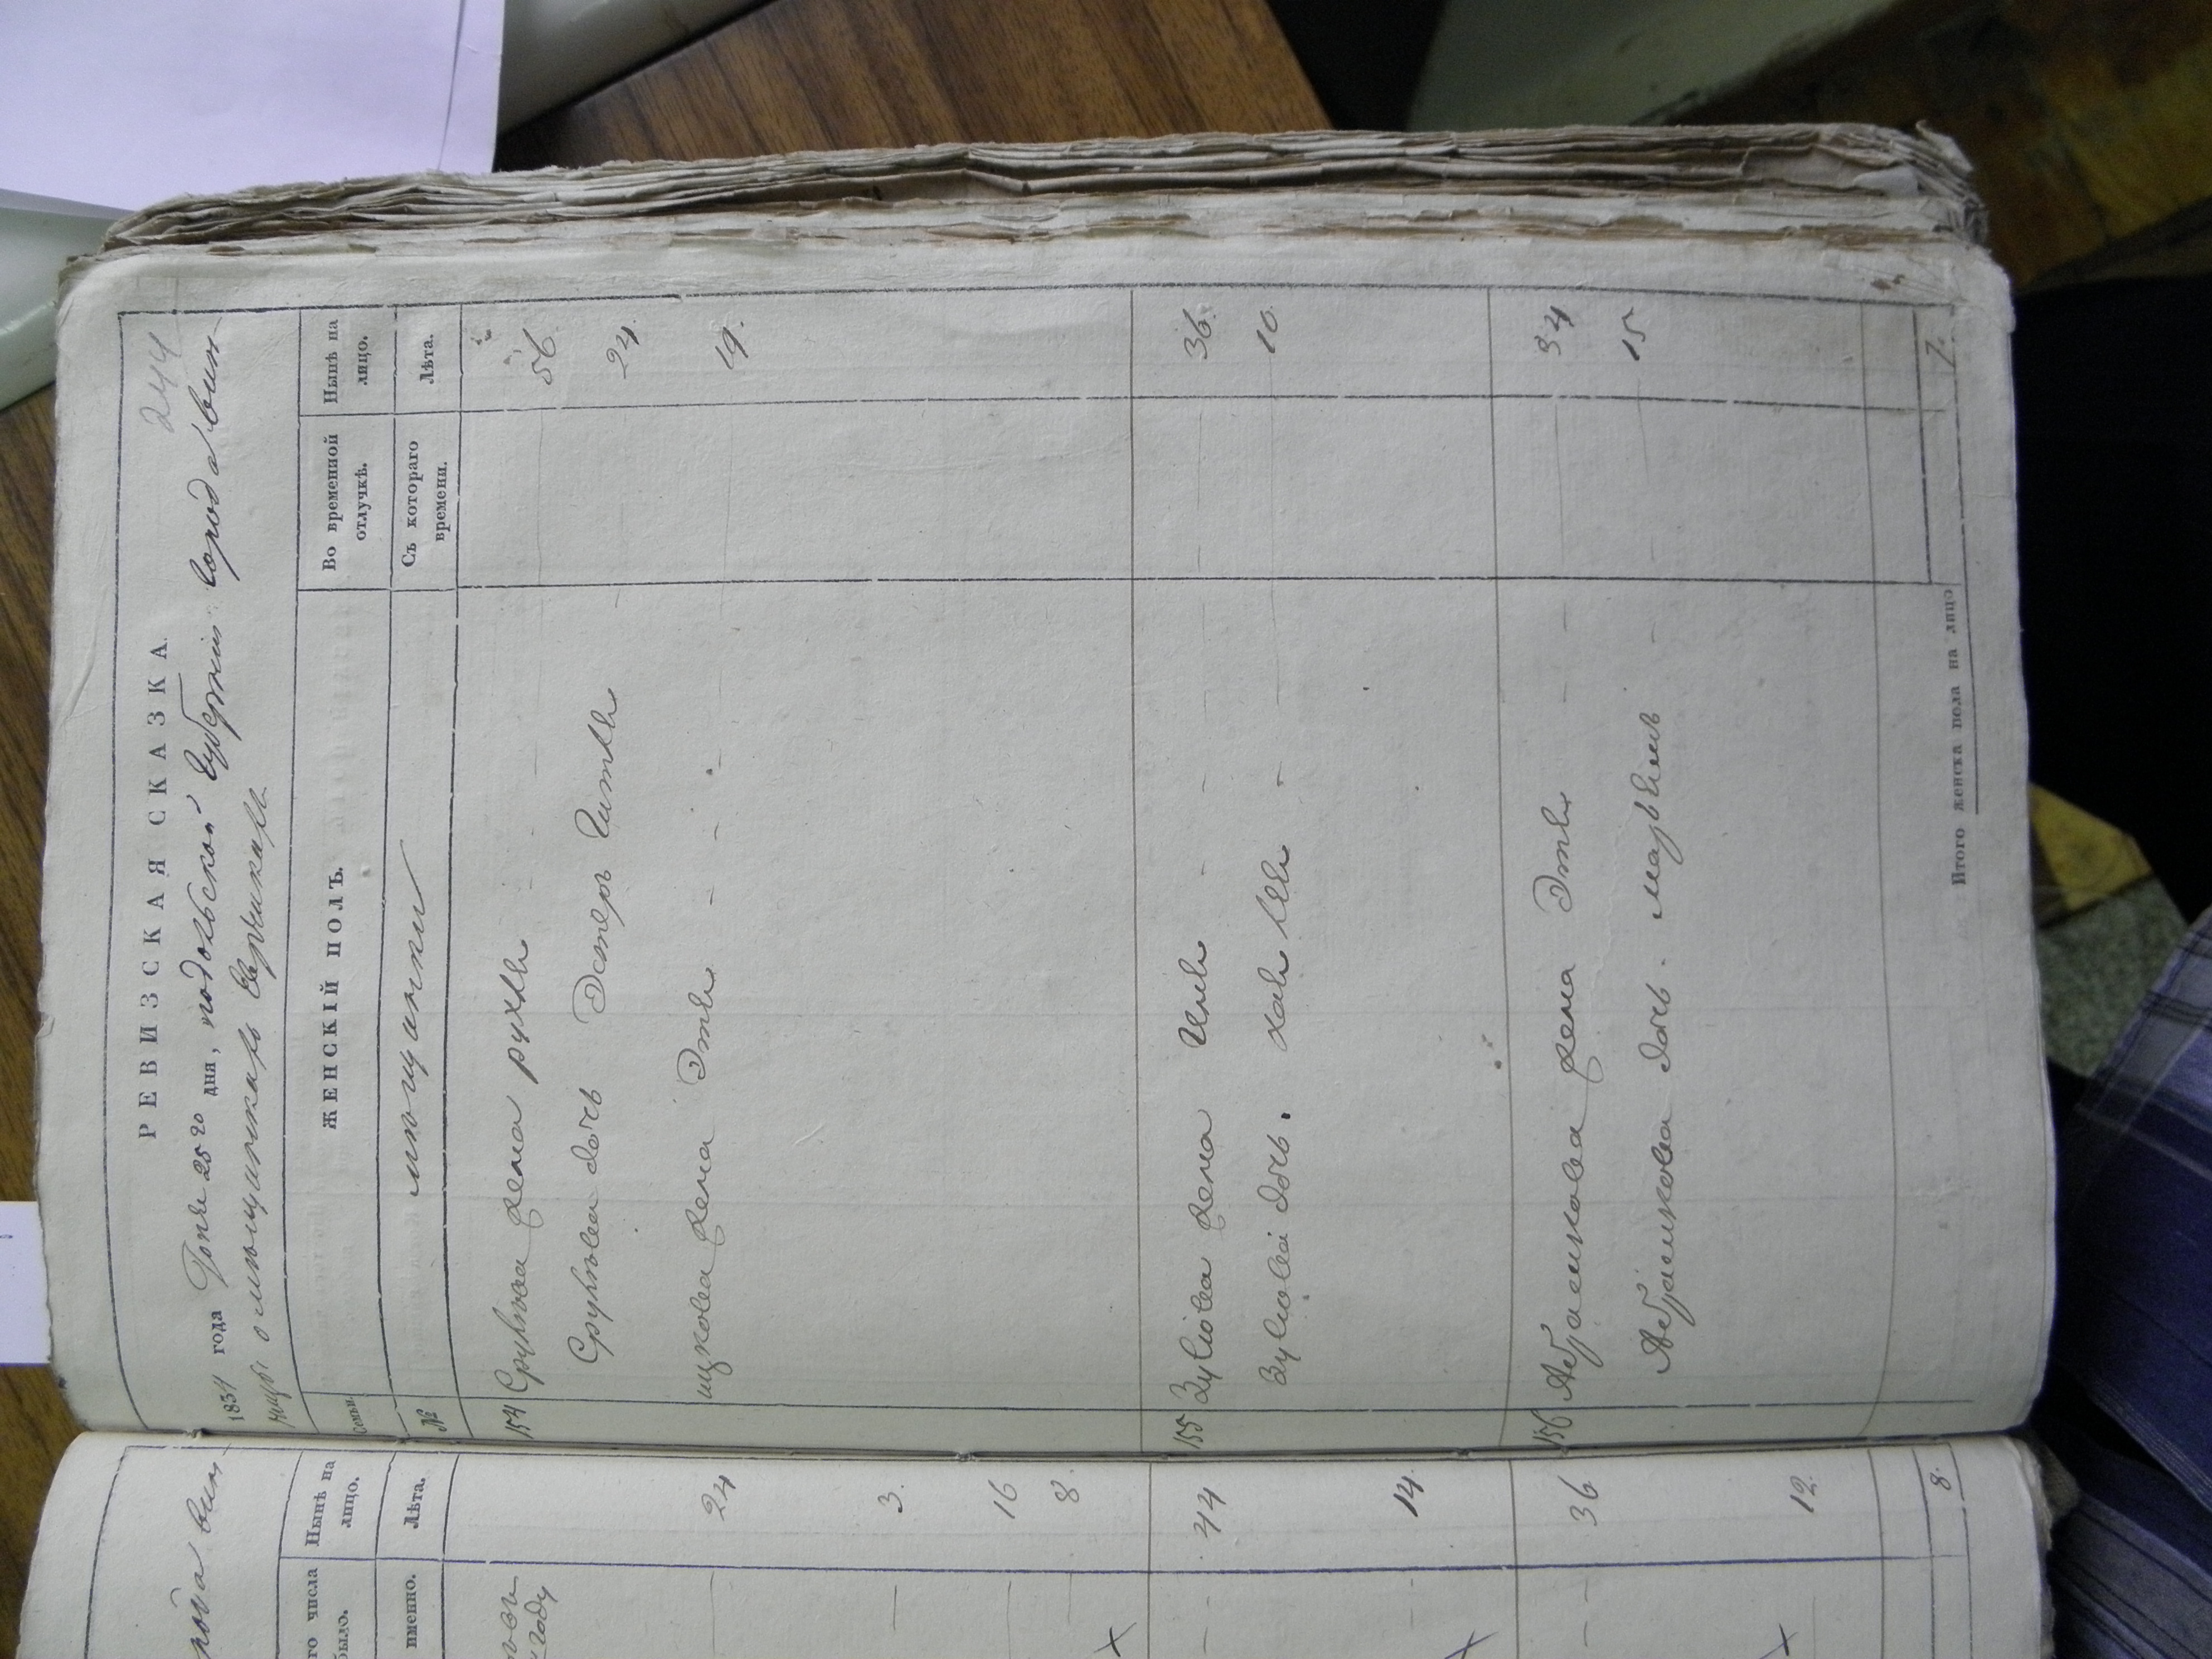 244
РЕВИЗСКАЯ СКАЗКА.
1834 года 25го дня, подольской Губернии города вин
ницы о мѣщанкахъ Евреикахъ
Семьи.
ЖЕНСКІЙ ПОЛЪ.
Во временной отлучкѣ.
Нынѣ на лицо.
№
мѣщанки
Съ котораго времени.
Лѣта.
154 Срулева жена рухля 56.
Срулева дочь Эстеръ Гитля 24.
ицкова жена Этля 19.
155 жена 36.
дочь. 10.
156 Абрамкова жена Этля 34
Абрамкова дочь. 15
Итого женска пола на лицо 7.
рода вин
го числа было.
Нынѣ на лицо.
именно.
Лѣта.
году
24
3.
16
8.
44
14.
36
12.
8.